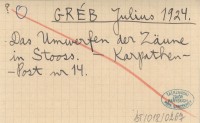 GRÉB Julius 1924.
Das Umwerfen der Zäune
in Stooss. - Karpathen-
-Post nr 14.